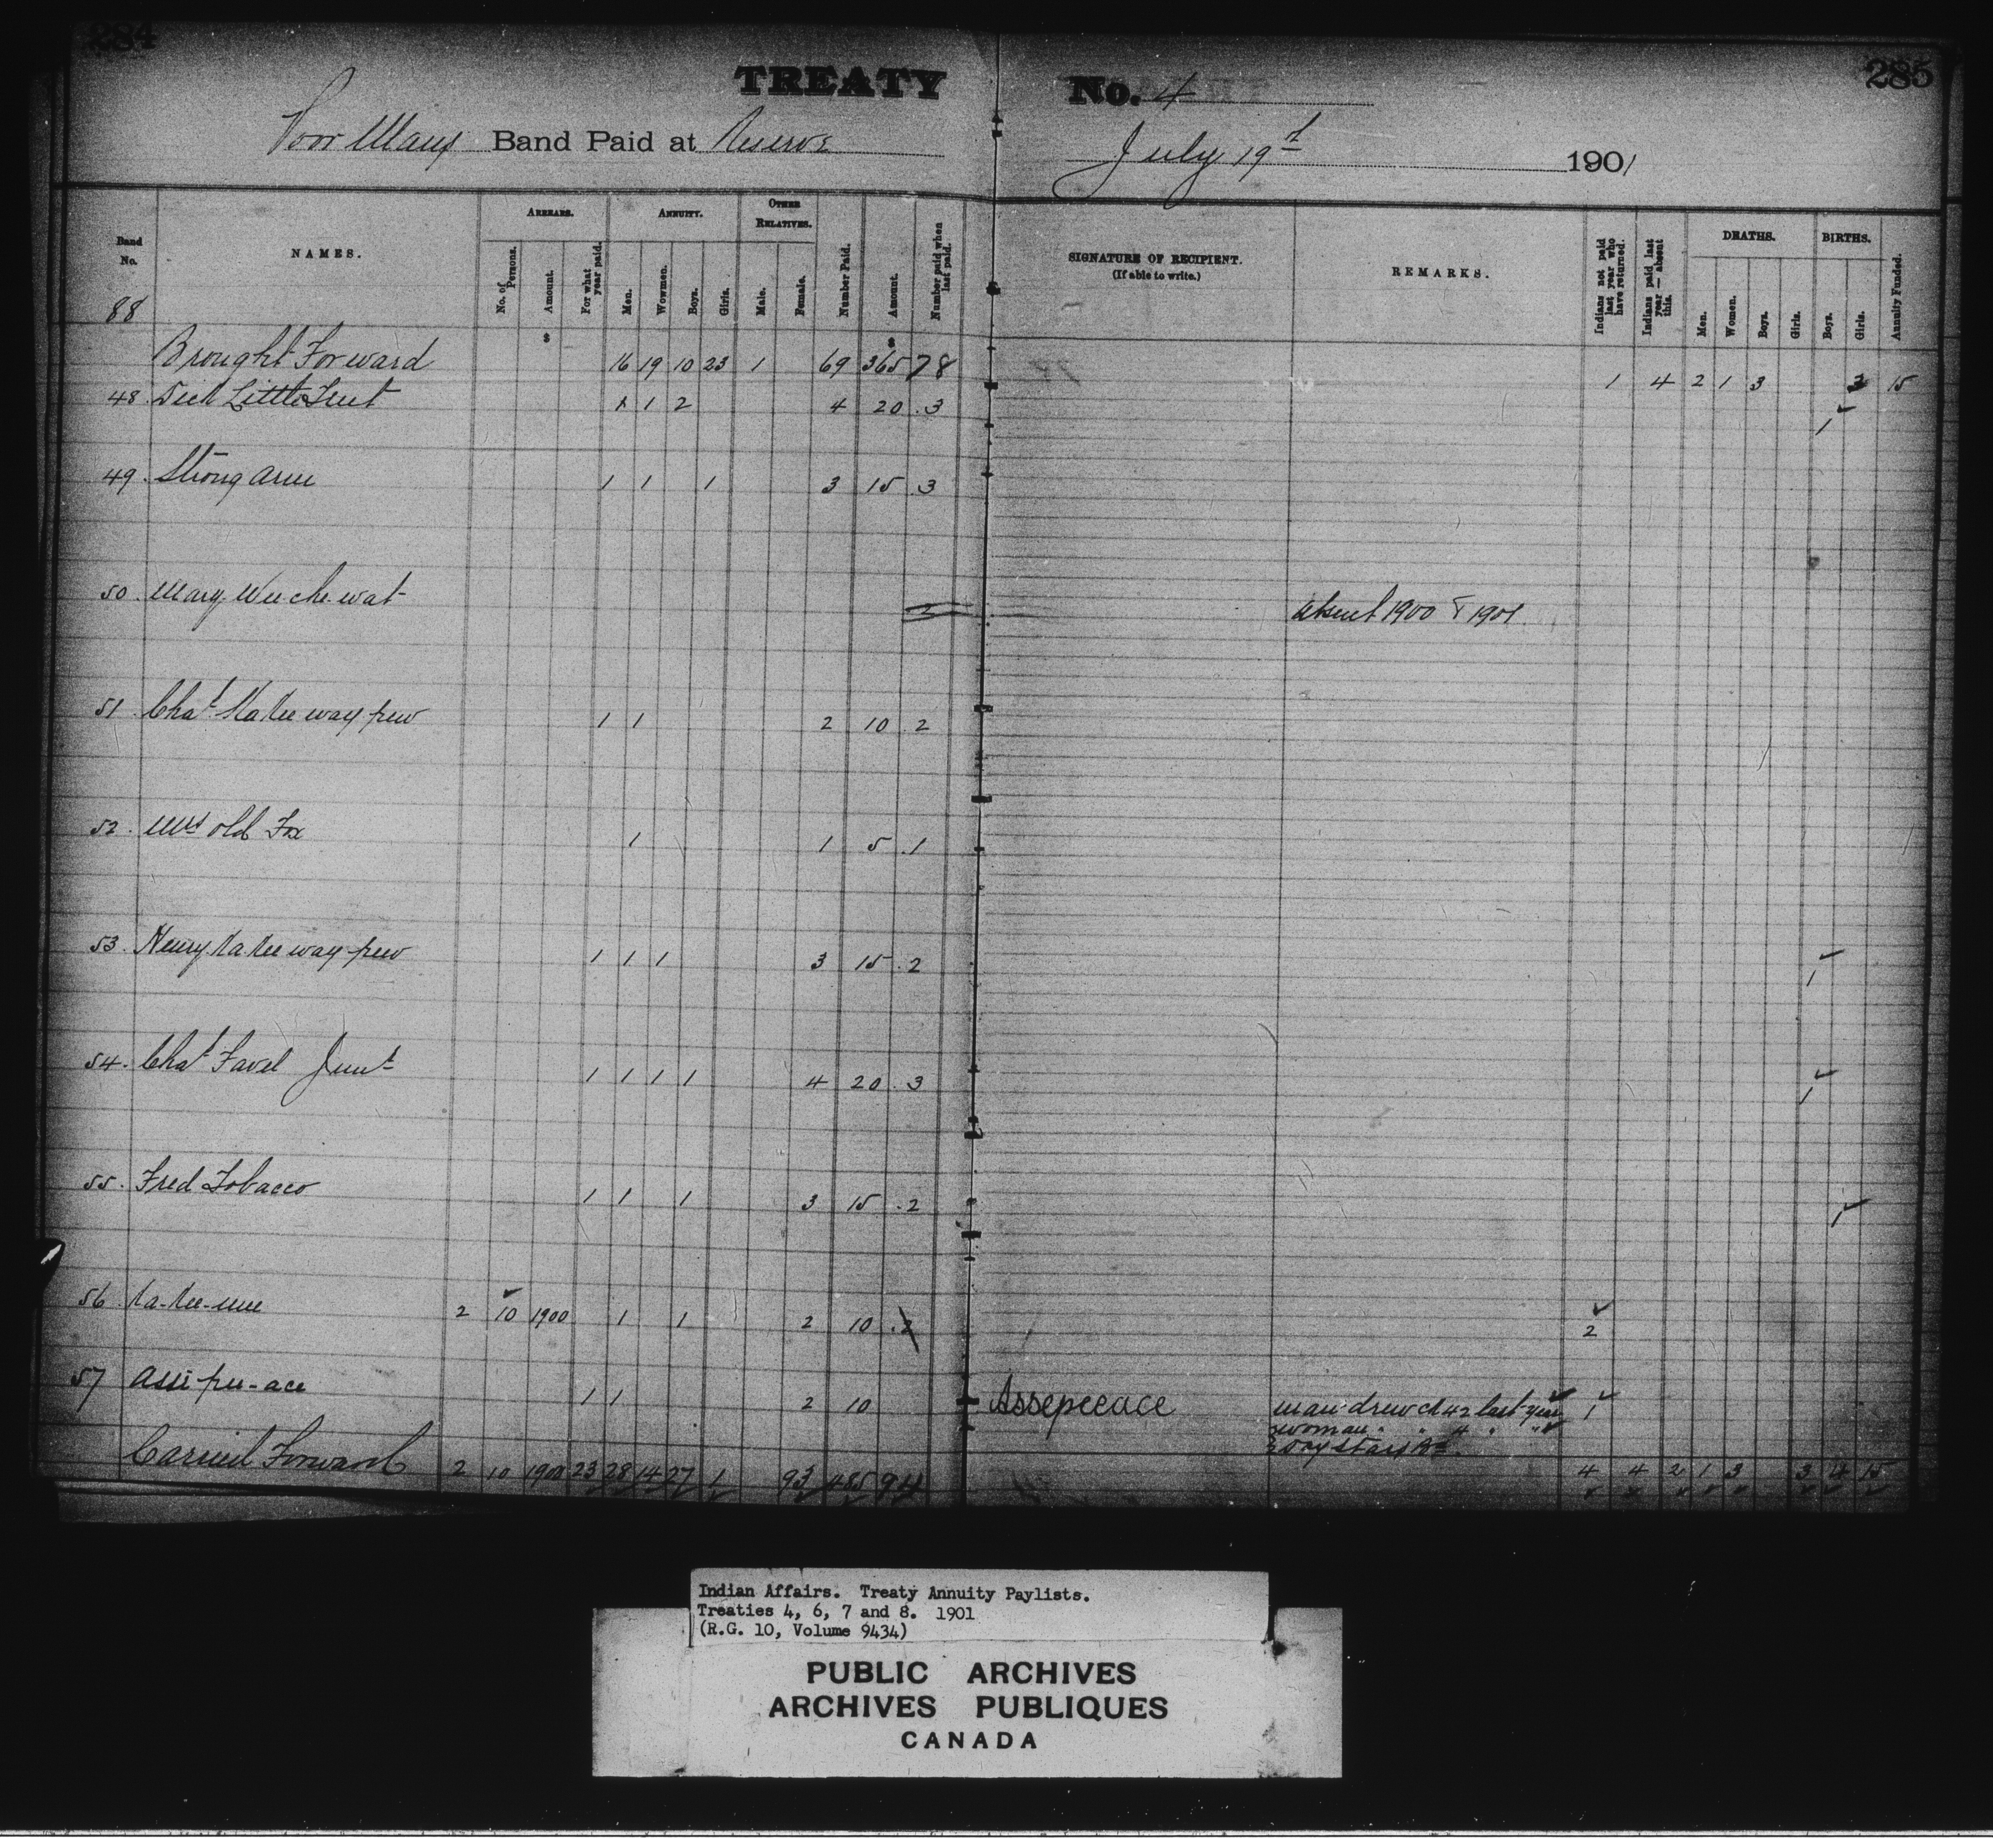 284
TREATY No. 4
285
Poor Mans Band Paid at Reserve
July 19th 1901
Band No.
NAMES.
ARREARS.
No. of Persons.
Amount.
For what year paid.
ANNUITY.
Men.
Wowmen.
Boys.
Girls.
OTHER RELATIVES.
Male.
Female.
Number Paid.
Amount.
Number paid when last paid.
SIGNATURE OF RECIPIENT.
(If able to write.)
REMARKS.
Indians not paid last year who have returned.
Indians paid last year — absent this.
DEATHS.
Men.
Women.
Boys.
Girls.
BIRTHS.
Boys.
Girls.
Annuity Funded.
88
$ $
Brought Forward 16 19 10 23 1 69 365 78 1 4 2 1 3 2 15
48 Dick Little Tent 1 1 2 4 20 3 1
49 Strong Arm 1 1 1 3 15 3
50 Mary Wee che wat 2 absent 1900 & 1901
51 Chas Ka kee way pew 1 1 2 10 2
52 Mrs old Fox 1 1 5 1
53 Henry Ka kee way pew 1 1 1 3 15 2 1
54 Chas Favel Junr 1 1 1 1 4 20 3 1
55 Fred Tobacco 1 1 1 3 15 2 1
56 Ka-kee-mee 2 10 1900 1 1 2 10 2 2
57 Assi-pee-ace 1 1 2 10 Assepeeace man drew ch 42 last year 1
woman " " " "
Day Stars Bd
Carried Forward 2 10 1900 23 28 14 27 1 93 485 94 4 4 2 1 3 3 4 15
Indian Affairs. Treaty Annuity Paylists.
Treaties 4, 6, 7 and 8. 1901
(R.G. 10, Volume 9434)
PUBLIC ARCHIVES
ARCHIVES PUBLIQUES
CANADA